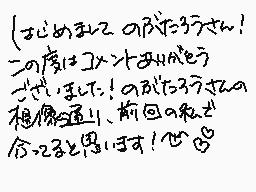 はじめまして のぶたろうさん!
この度はコメントありがとう
ございました!のぶたろうさんの
想像通り、前回の私で
合ってると思います!